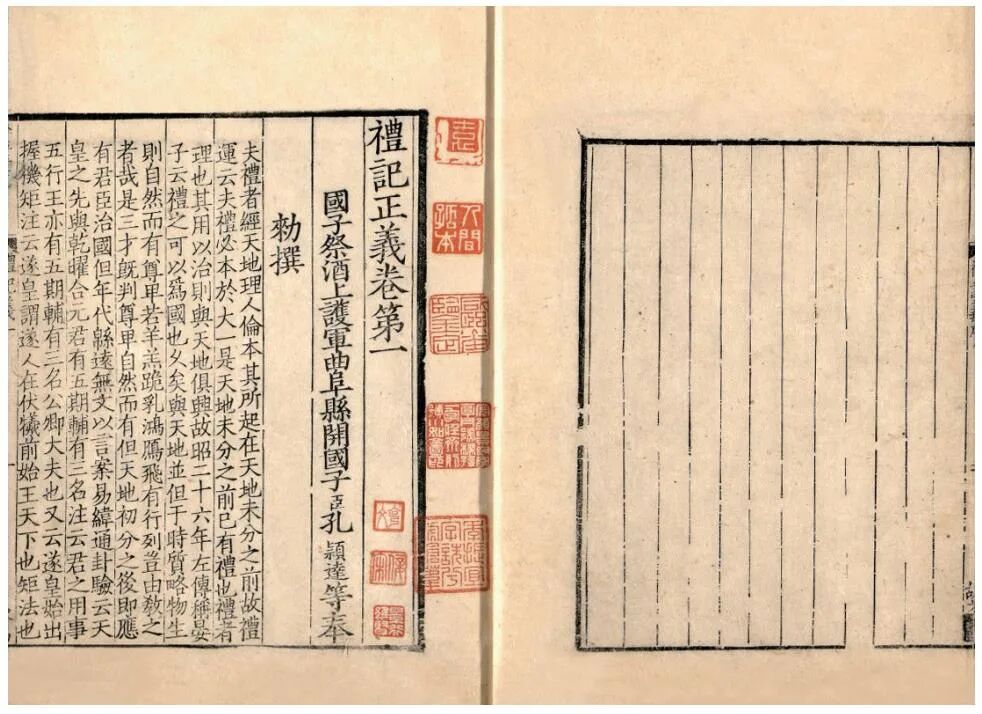 人間孤本
禮記正義卷第一
國子祭酒上護軍曲阜縣開國子臣孔穎達等奉
勑撰
夫禮者經天地理人倫本其所起在天地未分之前故禮
運云夫禮必本於大一是天地未分之前已有禮也禮者
理也其用以治則與天地俱興故昭二十六年左傳稱晏
子云禮之可以爲國也乆矣與天地並但于時質略物生
則自然而有尊卑若羊羔跪乳鴻鴈飛有行列豈由敎之
者哉是三才旣判尊卑自然而有但天地初分之後即應
有君臣治國但年代緜遠無文以言案易緯通卦驗云天
皇之先與乾曜合元君有五期輔有三名注云君之用事
五行王亦有五期輔有三名公卿大夫也又云遂皇始出
握機矩注云遂皇謂遂人在伏犧前始王天下也矩法也